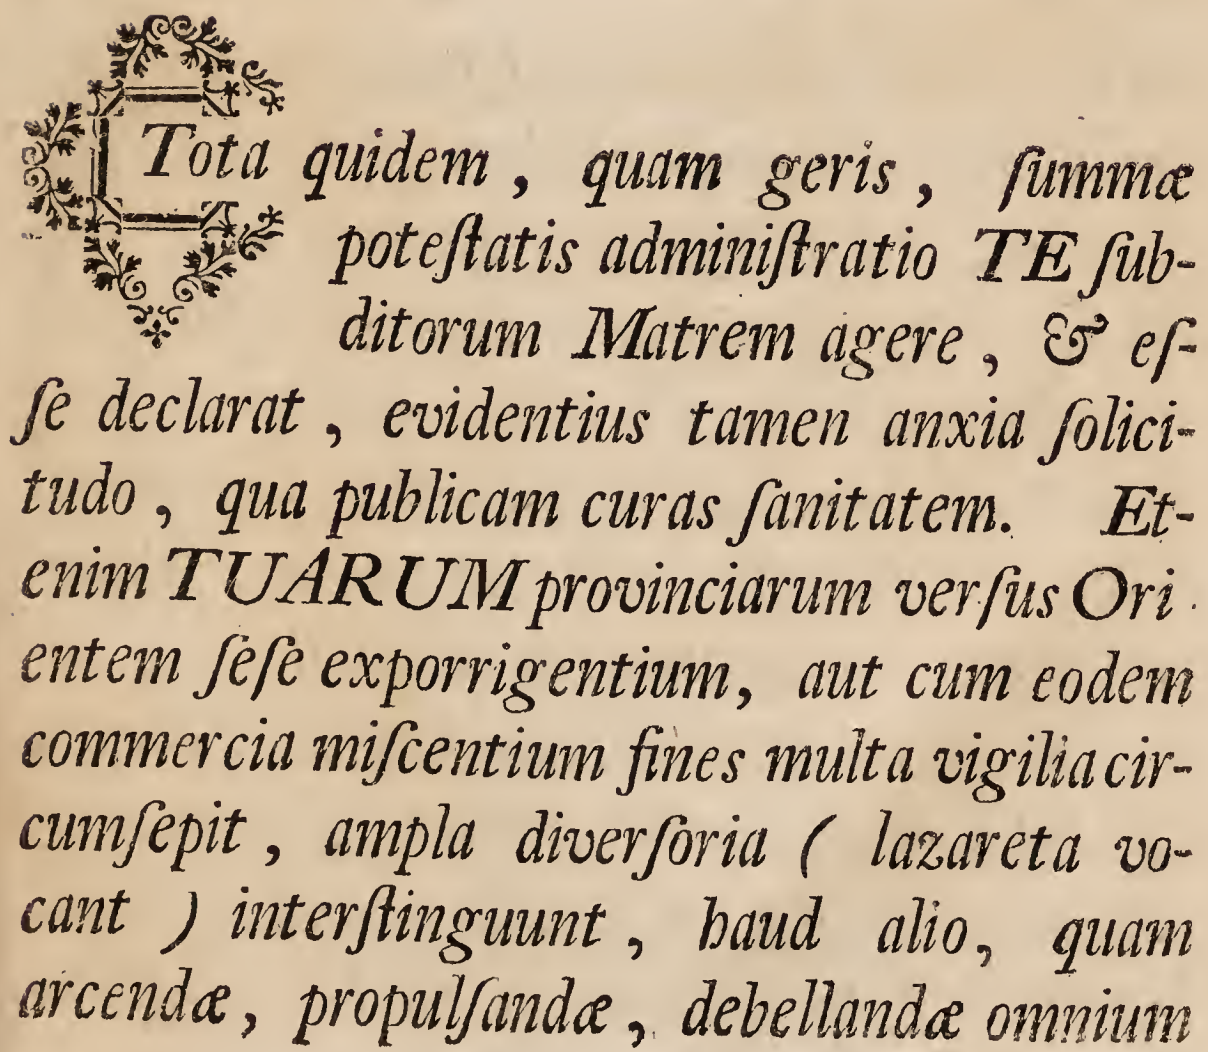 Tota quidem, quam geris, ſummæ
poteſtatis adminiſtratio TE ſub-
ditorum Matrem agere, & eſ-
ſe declarat, evidentius tamen anxia ſolici-
tudo, qua publicam curas ſanitatem. Et-
enim TUARUM provinciarum verſus Ori
entem ſeſe exporrigentium, aut cum eodem
commercia miſcentium fines multa vigilia cir-
cumſepit, ampla diverſoria ( lazareta vo-
cant ) interſtinguunt, haud alio, quam
arcendæ, propulſandæ, debellandæ omnium